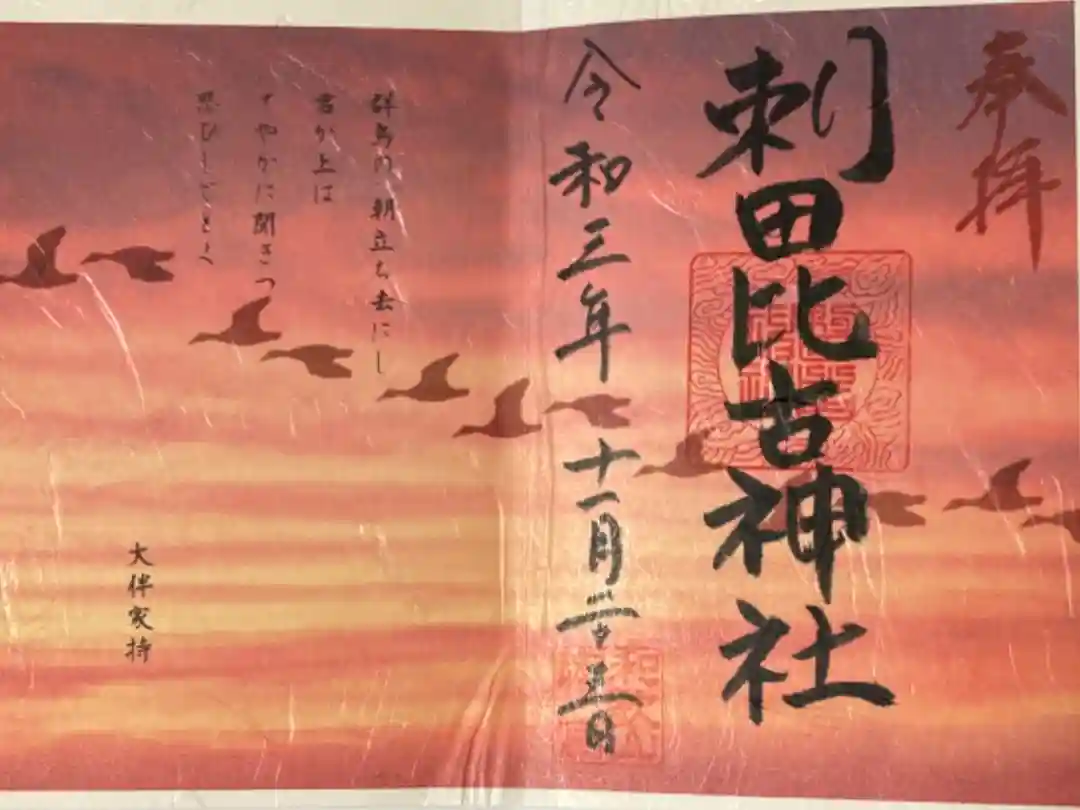 奉拝
刺田比古神社
令和三年十一月二十三日
群鳥の 朝立ち去にし
君が上は
さやかに聞きつ
思ひしごとく
大伴家持